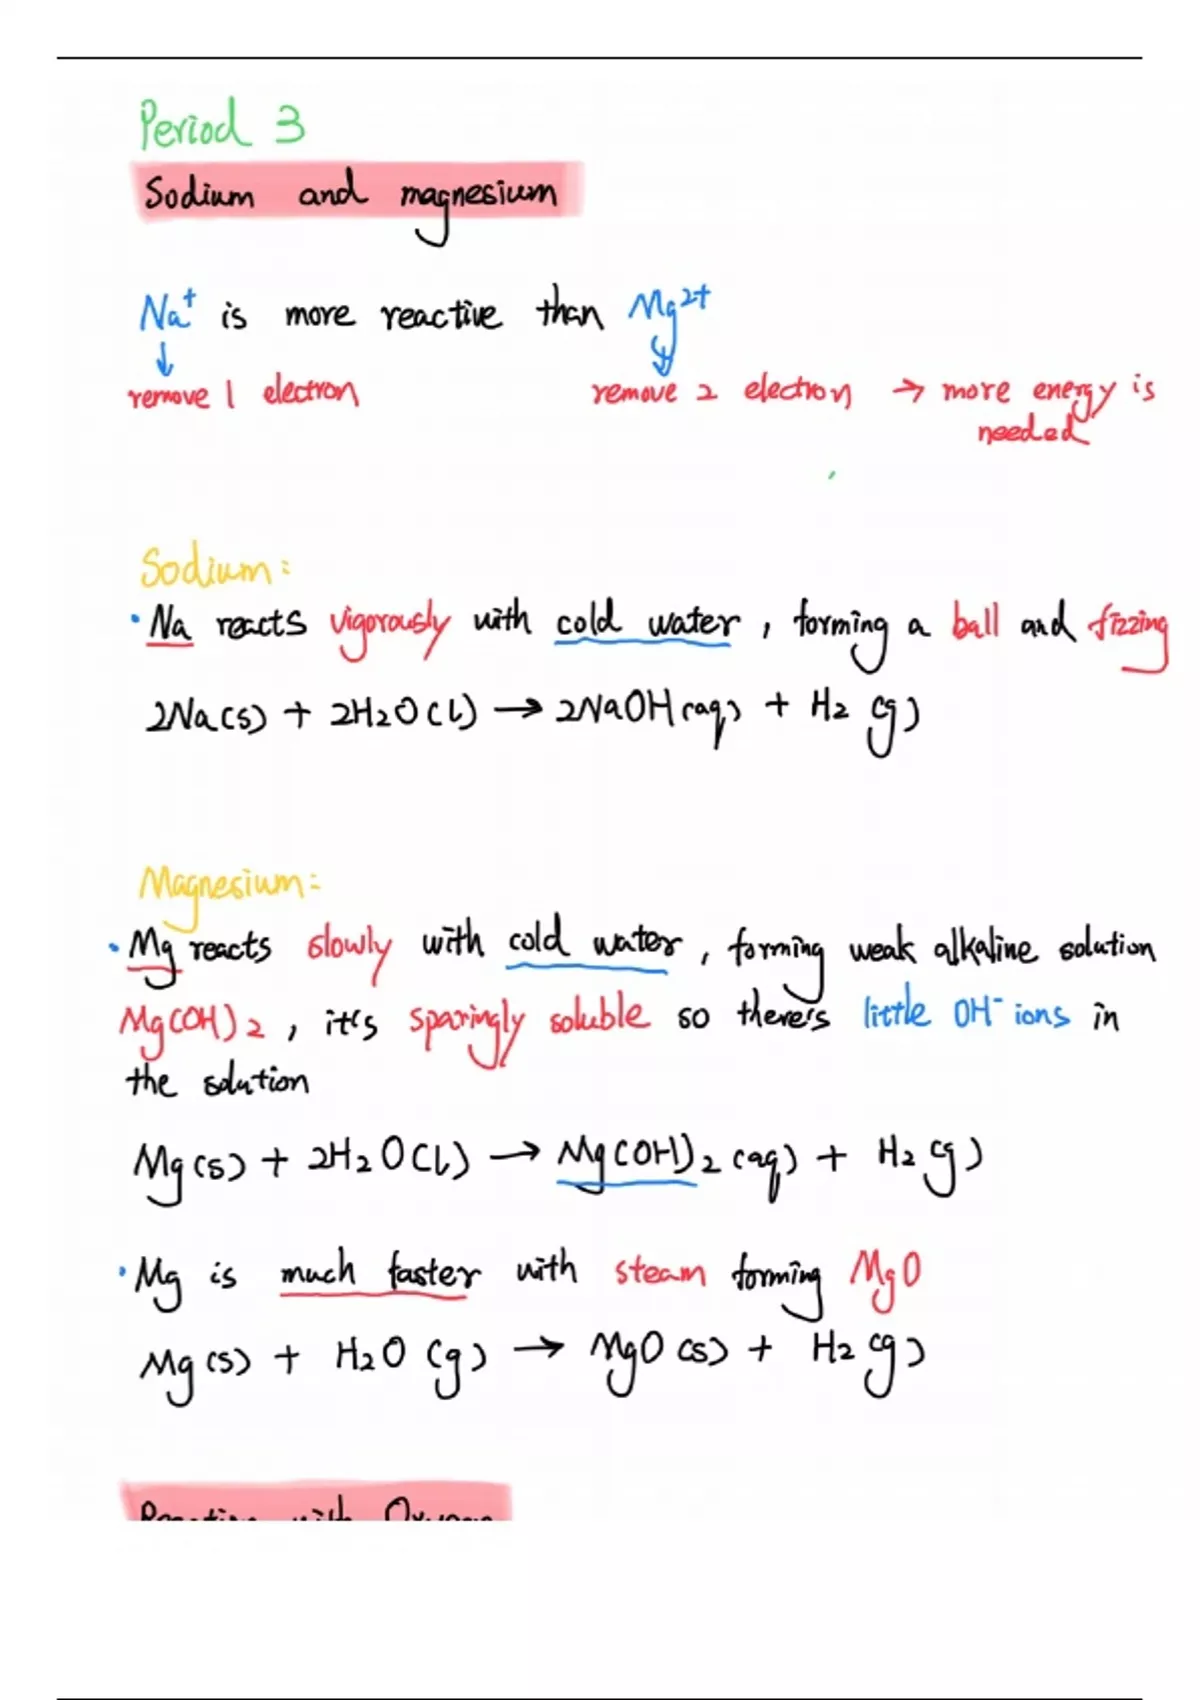 Period 3
Sodium and magnesium
Na⁺ is more reactive than Mg²⁺
↓ ↓
remove 1 electron remove 2 electron → more energy is
needed
Sodium:
• Na reacts vigorously with cold water, forming a ball and fizzing
2Na(s) + 2H₂O(l) → 2NaOH(aq) + H₂(g)
Magnesium:
• Mg reacts slowly with cold water, forming weak alkaline solution
Mg(OH)₂, it's sparingly soluble so there's little OH⁻ ions in
the solution
Mg(s) + 2H₂O(l) → Mg(OH)₂(aq) + H₂(g)
• Mg is much faster with steam forming MgO
Mg(s) + H₂O(g) → MgO(s) + H₂(g)
Reaction with Oxygen